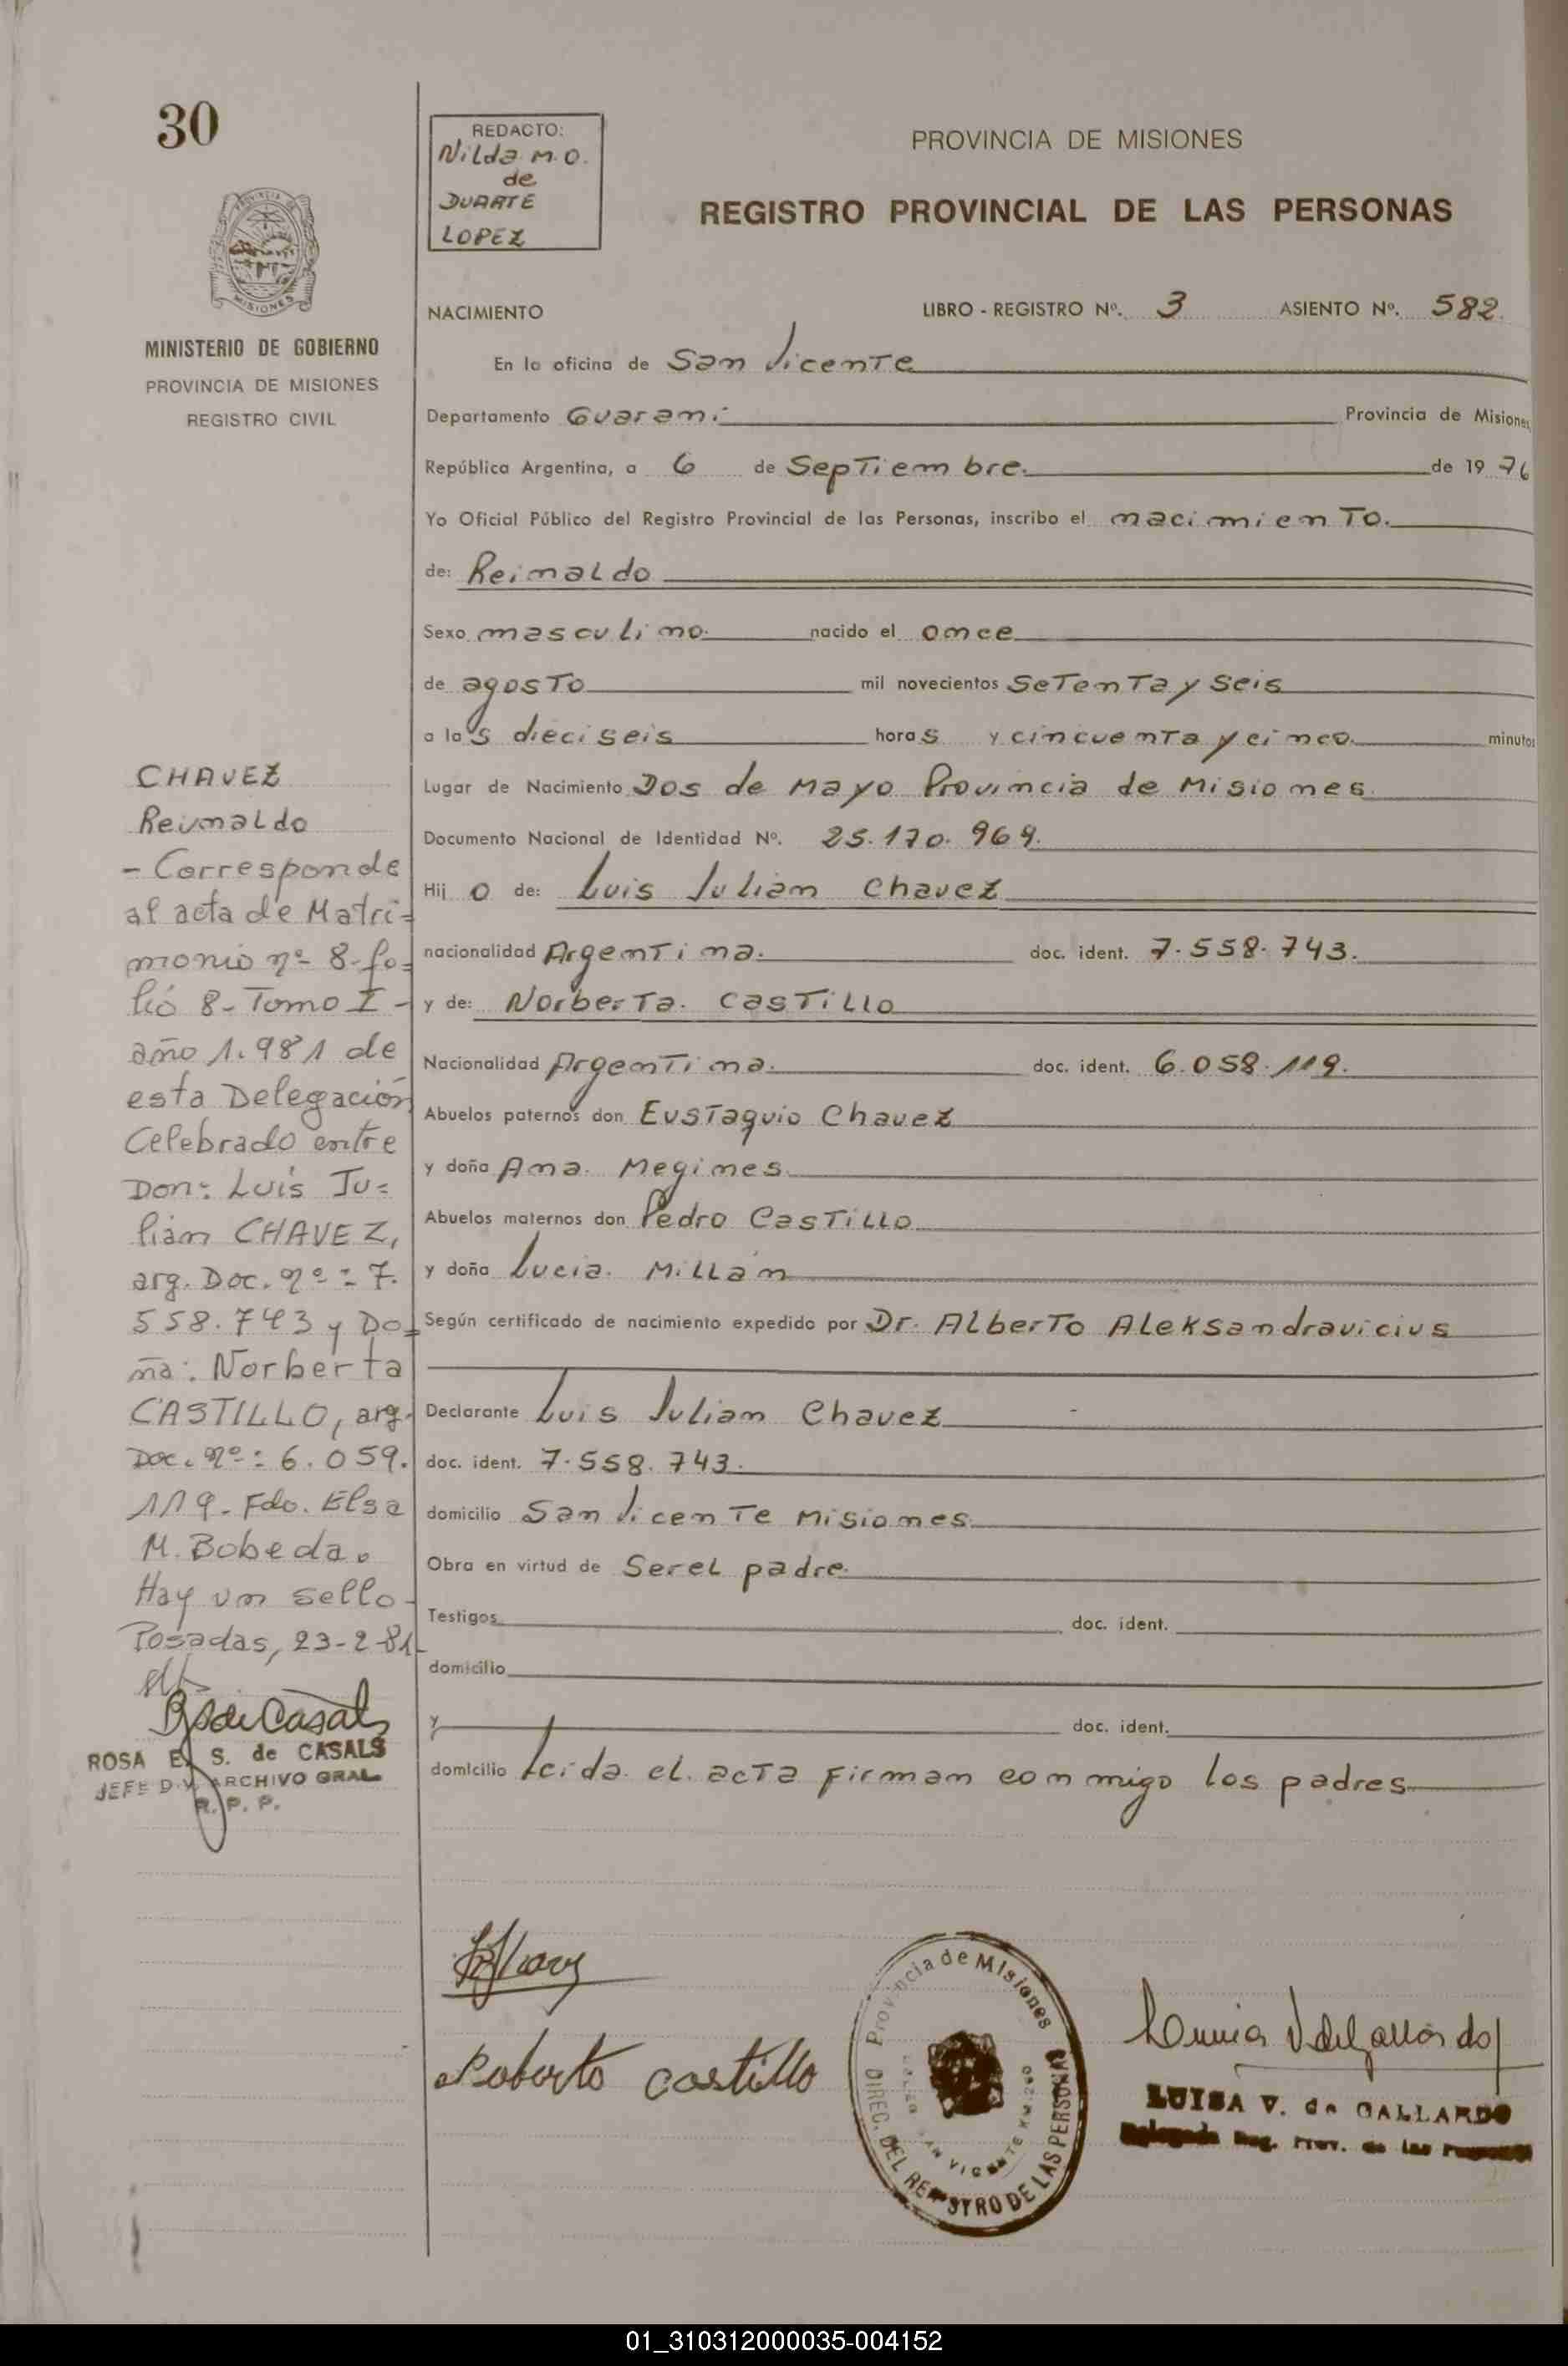 30
REDACTO:
Nilda M.O.
de
DUARTE
LOPEZ
PROVINCIA DE MISIONES
REGISTRO PROVINCIAL DE LAS PERSONAS
MISIONES
MINISTERIO DE GOBIERNO
PROVINCIA DE MISIONES
REGISTRO CIVIL
NACIMIENTO LIBRO - REGISTRO Nº. 3 ASIENTO Nº. 582.
En la oficina de San Vicente
Departamento Guarani Provincia de Misiones
República Argentina, a 6 de Septiembre. de 19 76
Yo Oficial Público del Registro Provincial de las Personas, inscribo el nacimiento.
de: Reinaldo
Sexo masculino. nacido el once
de agosto mil novecientos setenta y seis
a las dieciseis horas y cincuenta y cinco. minutos
Lugar de Nacimiento Dos de Mayo Provincia de Misiones.
Documento Nacional de Identidad Nº. 25.170.969.
Hijo de: Luis Julian Chavez
nacionalidad Argentina. doc. ident. 7.558.743.
y de: Norberta. Castillo
Nacionalidad Argentina. doc. ident. 6.058.119.
Abuelos paternos don Eustaquio Chavez
y doña Ana. Megines.
Abuelos maternos don Pedro Castillo
y doña Lucia. Millán
Según certificado de nacimiento expedido por Dr. Alberto Aleksandravicius
Declarante Luis Julian Chavez
doc. ident. 7.558.743.
domicilio San Vicente Misiones.
Obra en virtud de Ser el padre.
Testigos doc. ident.
domicilio
y doc. ident.
domicilio Leida el acta firman conmigo los padres
CHAVEZ
Reinaldo
- Corresponde
al acta de Matri=
monio nº 8-fo=
lio 8- Tomo I -
año 1.981 de
esta Delegación
Celebrado entre
Don: Luis Ju=
lián CHAVEZ,
arg. Doc. nº: 7.
558.743 y Do=
ña: Norberta
CASTILLO, arg.
Doc. nº: 6.059.
119. Fdo. Elsa
M. Bobeda.
Hay un sello -
Posadas, 23-2-81
RSdeCasals
ROSA E. S. de CASALS
JEFE DIV. ARCHIVO GRAL.
R. P. P.
Roberto Castillo
Provincia de Misiones
DIREC. DEL REGISTRO DE LAS PERSONAS
SAN VICENTE KM.240
LUISA V. de GALLARDO
Delegada Reg. Prov. de las Personas
01_310312000035-004152